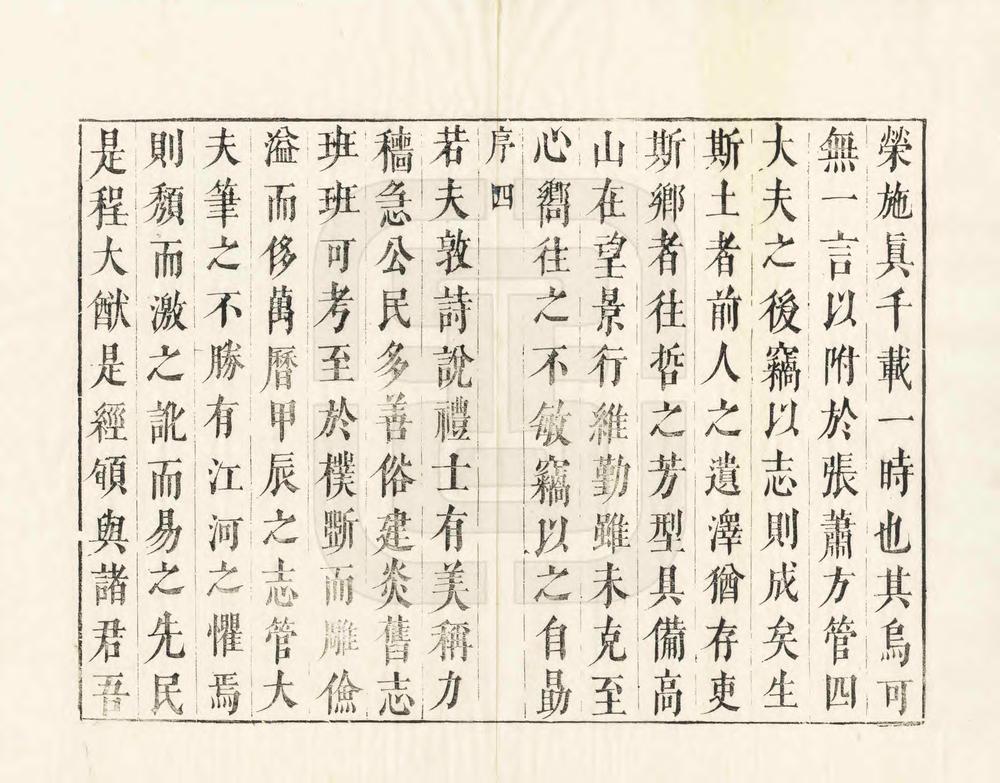 榮施眞千載一時也其烏可
無一言以附於張蕭方管四
大夫之後竊以志則成矣生
斯土者前人之遺澤猶存吏
斯鄉者往哲之芳型具備高
山在望景行維勤雖未克至
心嚮往之不敏竊以之自勗
序 四
若夫敦詩說禮士有美稱力
穡急公民多善俗建炎舊志
班班可考至於樸斲而雕儉
溢而侈萬曆甲辰之志管大
夫筆之不勝有江河之懼焉
則頽而激之訛而易之先民
是程大猷是經頎與諸君吾